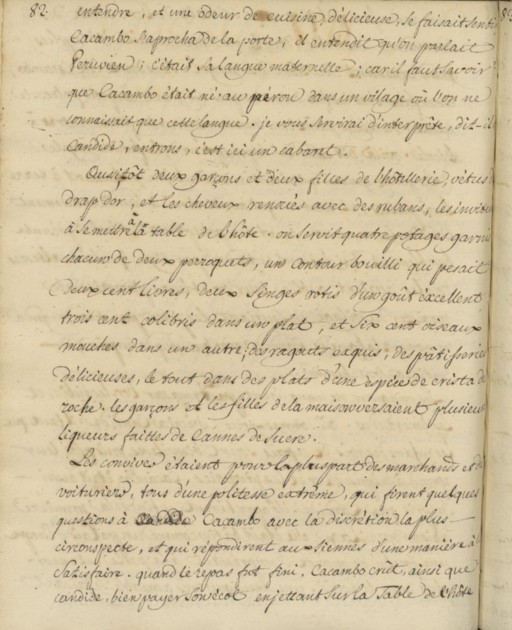 82.
entendre, et une odeur de cuisine délicieuse se faisait senti
Cacambo s'aprocha de la porte, il entendit qu'on parlait
Peruvien; c'était sa langue maternelle; car il faut savoir
que Cacambo était né au pérou dans un vilage où l'on ne
connaissait que cette langue. je vous servirai d'interprête, dit-il
Candide, entrons, c'est ici un cabaret.
Aussitôt deux garçons et deux filles de l'hôtellerie, vétus
drap d'or, et les cheveux renoüés avec des rubans, les invite
à se mettre à la table de l'hôte. on servit quatre potages garnis
chacun de deux perroquets, un contour bouilli qui pesait
deux cent livres, deux singes rotis d'un goût éxcellent
trois cent colibris dans un plat, et six cent oiseaux
mouches dans un autre; des ragouts exquis; des pâtisseries
délicieuses, le tout dans des plats d'une espéce de crista de
roche. les garçons et les filles de la maison versaient plusieur
liqueurs faittes de Cannes de sucre.
Les convives étaient pour la pluspart des marchands et de
voituriers, tous d'une politesse extrême, qui firent quelques
questions à Cacambo avec la discrétion la plus
circonspecte, et qui répondirent aux siennes d'une manière à
satisfaire. quand le repas fut fini, Cacambo crut, ainsi que
candide, bien payer son écot en jettant sur la Table de l'hôte